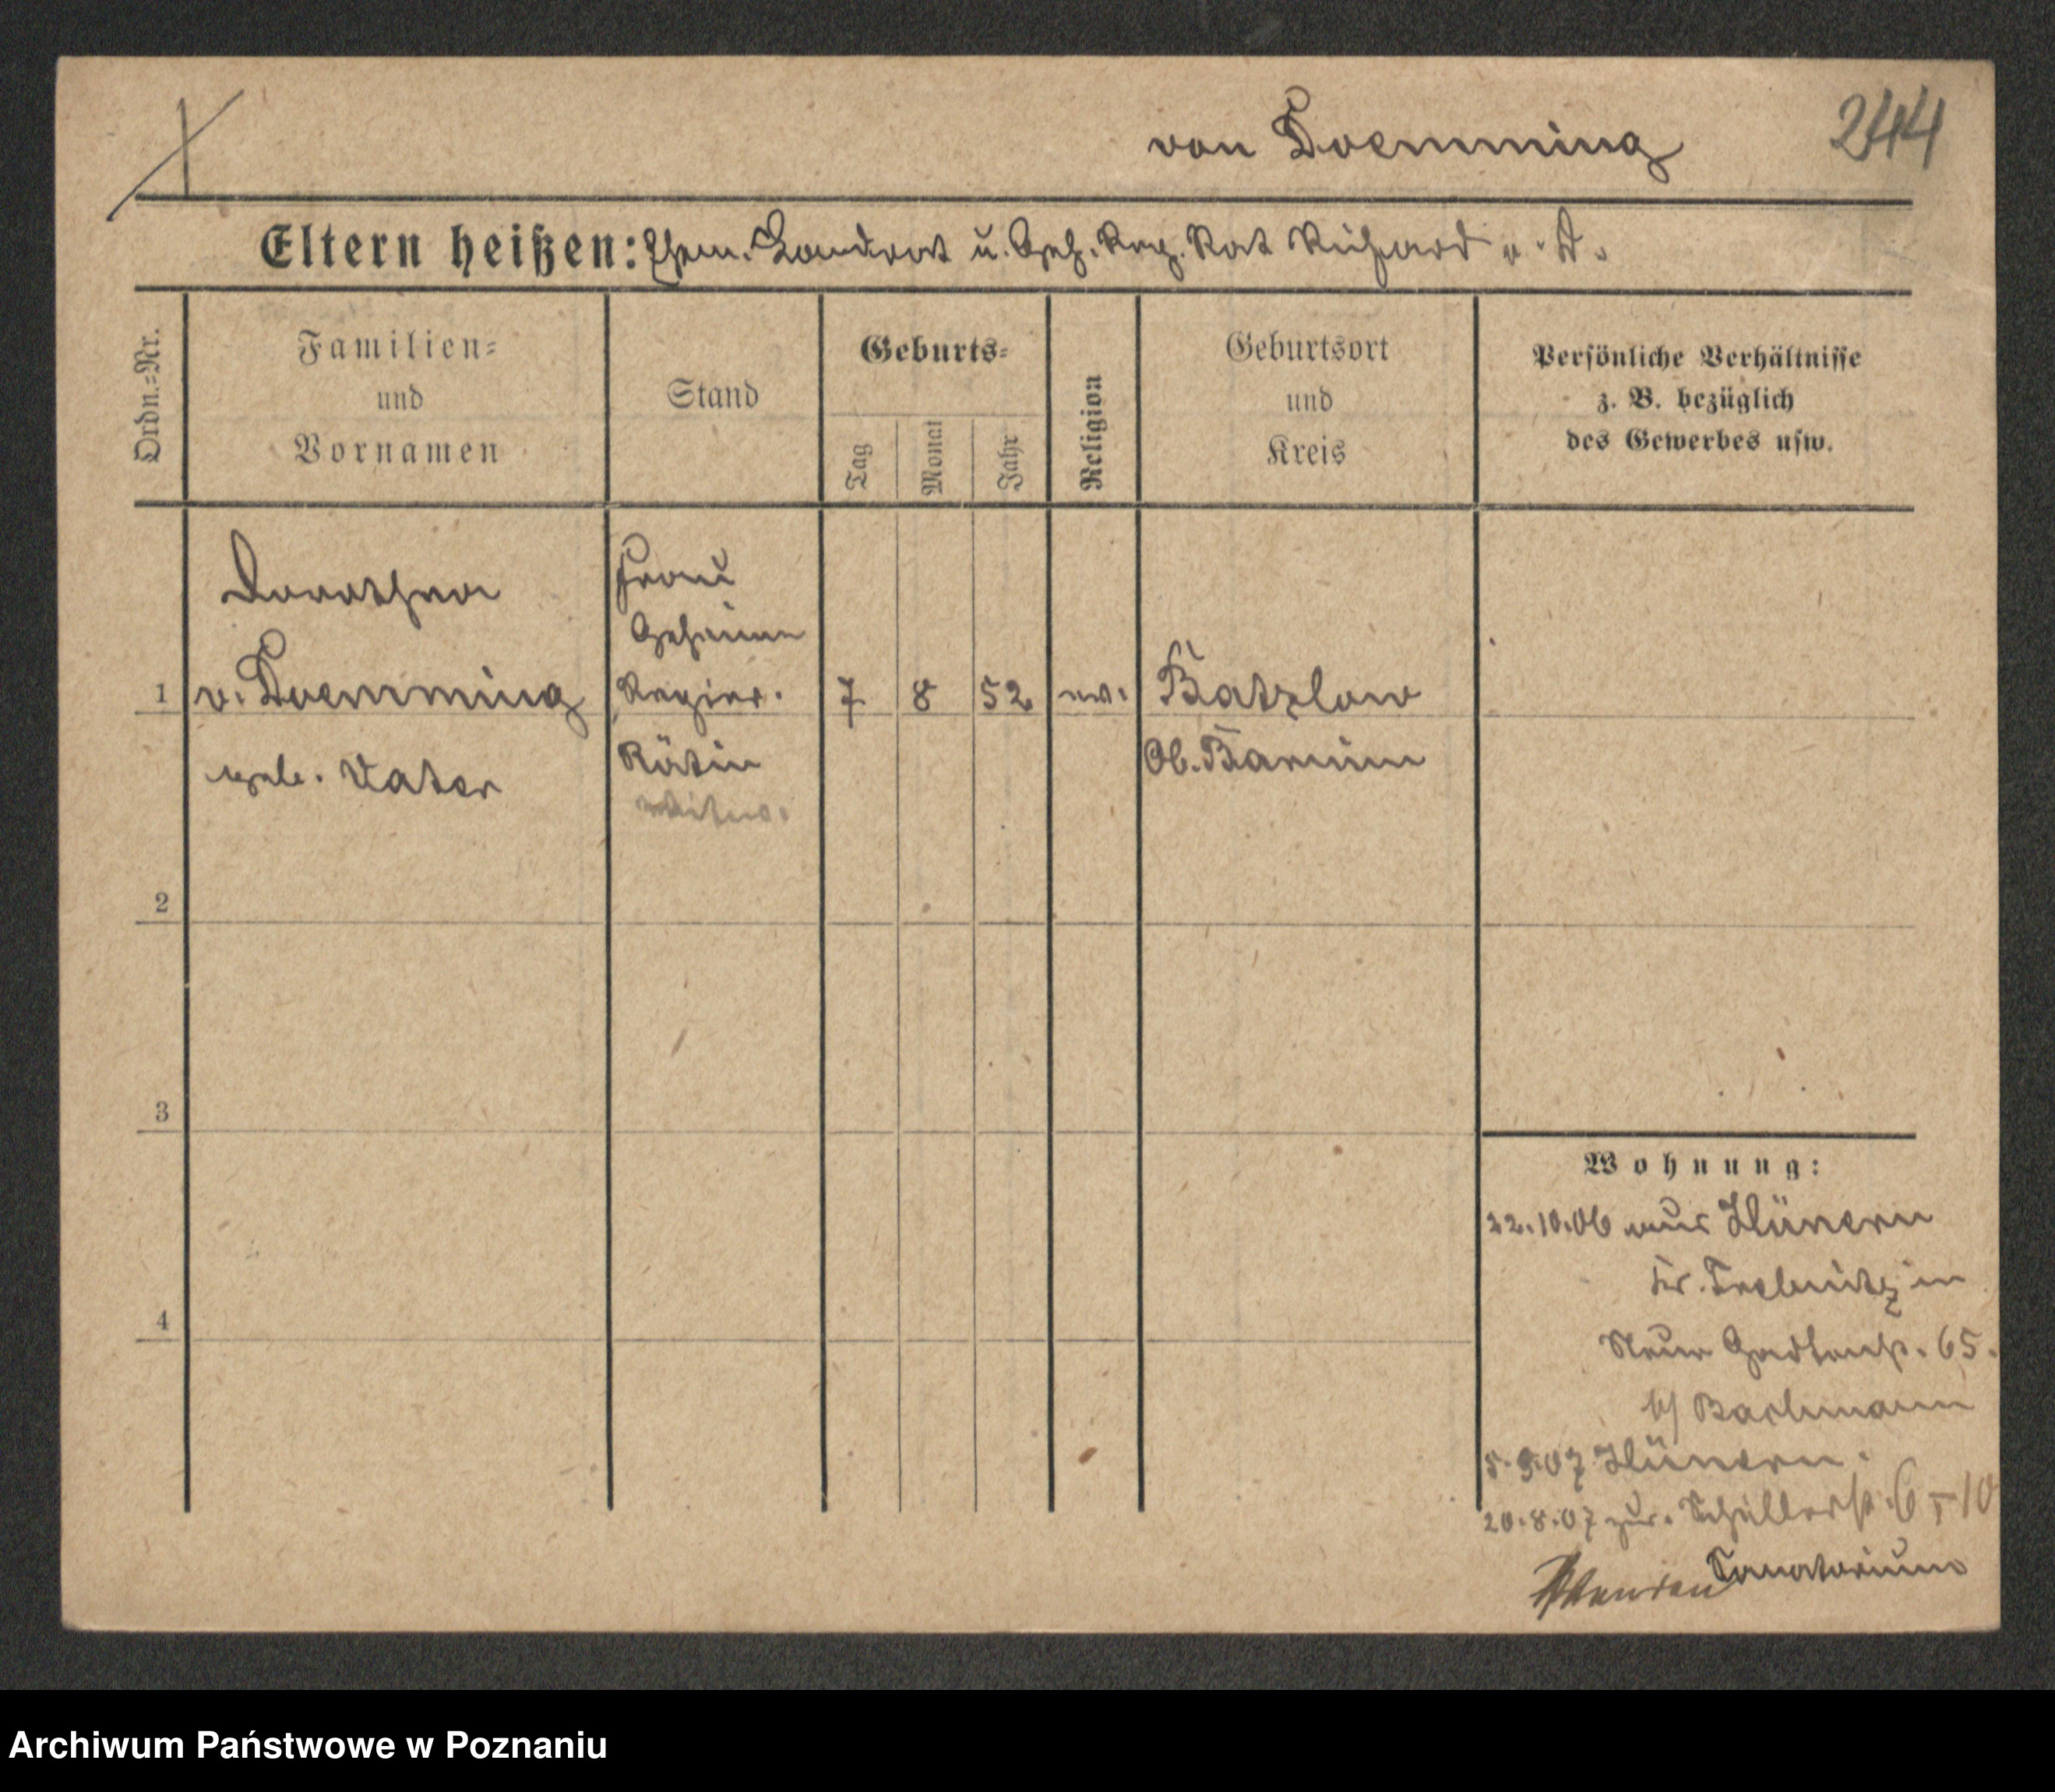 von Doemming 244
Eltern heißen: Ehem. Landrat u. Geh. Reg. Rat Richard v. D.
Ordn.=Nr.
Familien=
und
Vornamen
Stand
Geburts=
Tag
Monat
Jahr
Religion
Geburtsort
und
Kreis
Persönliche Verhältnisse
z. B. bezüglich
des Gewerbes usw.
Dorothea
v. Doemming
geb. Vater
Frau
Geheime
Regier.
Rätin
Witwe.
1
7
8
52
ev.
Batzlow
Ob. Barnim
2
3
4
Wohnung:
22.10.06 aus Hünern
Kr. Trebnitz in
Neue Gartenstr. 65.
b/ Bachmann
5.3.07 Hünern.
20.8.07 zur. Schillerstr. 6 I 10
Sanatorium
Archiwum Państwowe w Poznaniu